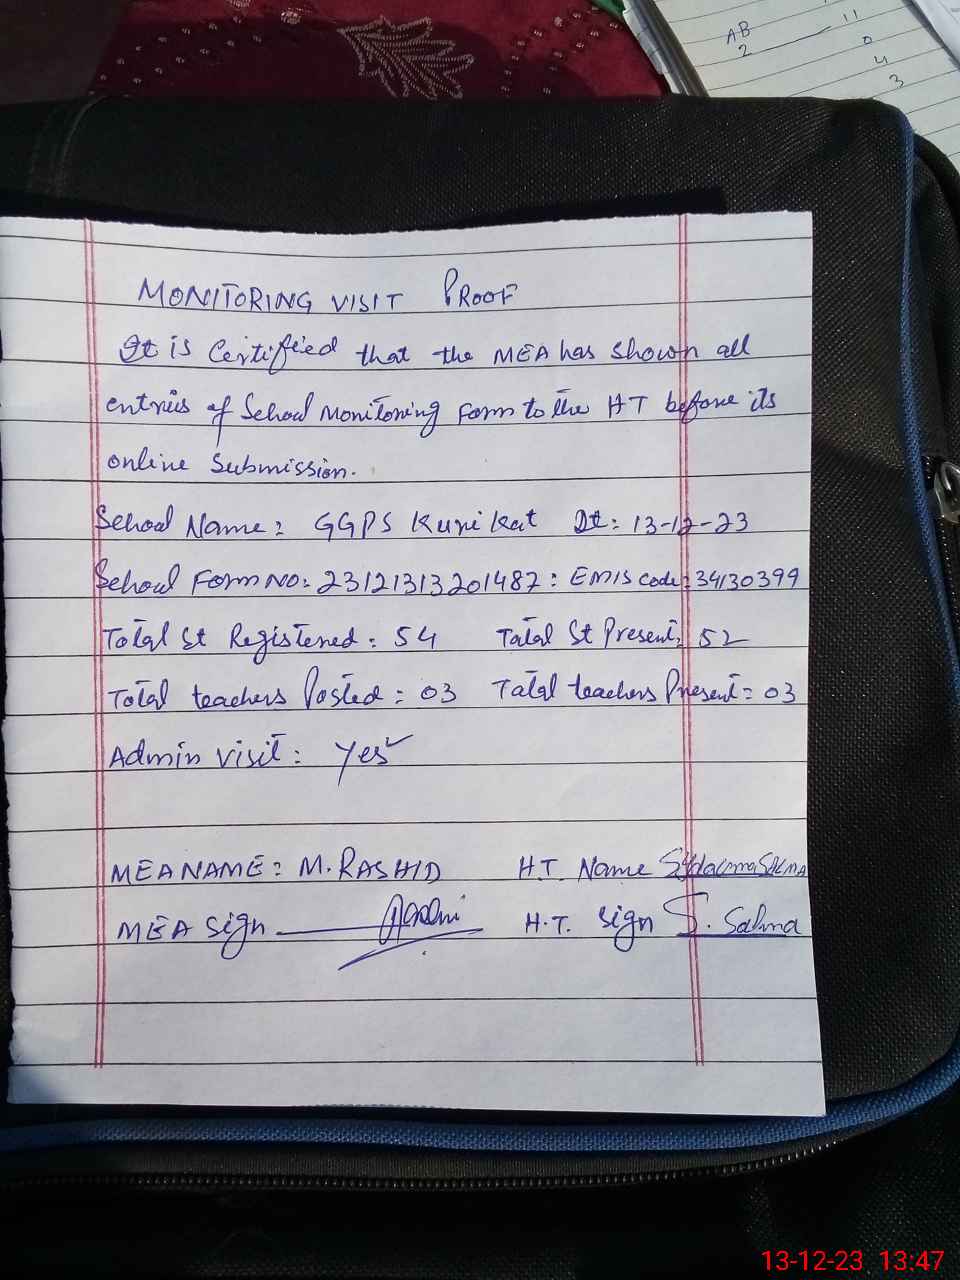 AB
2 11
0
4
3
MONITORING VISIT PROOF
It is Certified that the MEA has shown all
entries of School Monitoring Form to the HT before its
online Submission.
School Name: GGPS Kuri Kat Dt: 13-12-23
School Form NO: 23121313201487: EMIS code: 34130399
Total St Registered: 54 Total St Present: 52
Total teachers Posted: 03 Total teachers Present: 03
Admin visit: Yes
MEA NAME: M. RASHID H.T. Name
MEA Sign H.T. Sign S. Salma
13-12-23 13:47